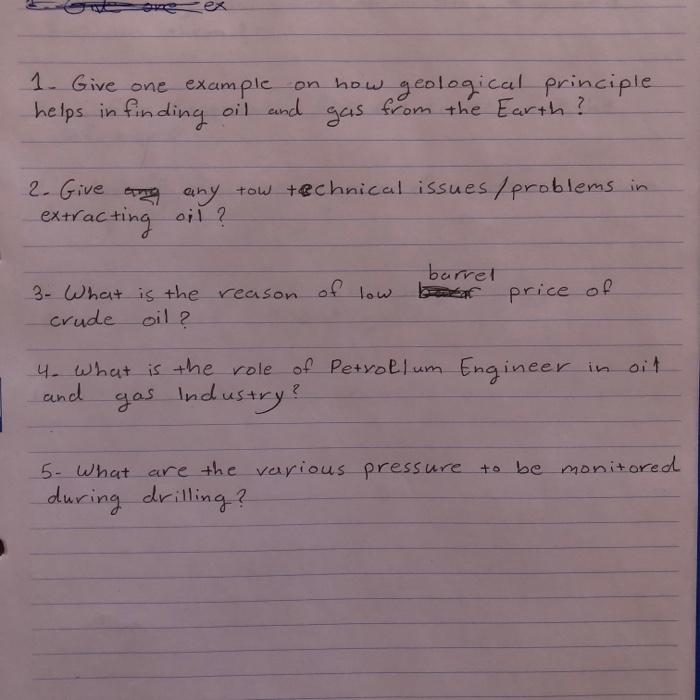 ex
1- Give one example on how geological principle
helps in finding oil and gas from the Earth?
2- Give any tow technical issues/problems in
extracting oil?
barrel
3- What is the reason of low price of
crude oil?
4- What is the role of Petroelum Engineer in oil
and gas Industry?
5- What are the various pressure to be monitored
during drilling?